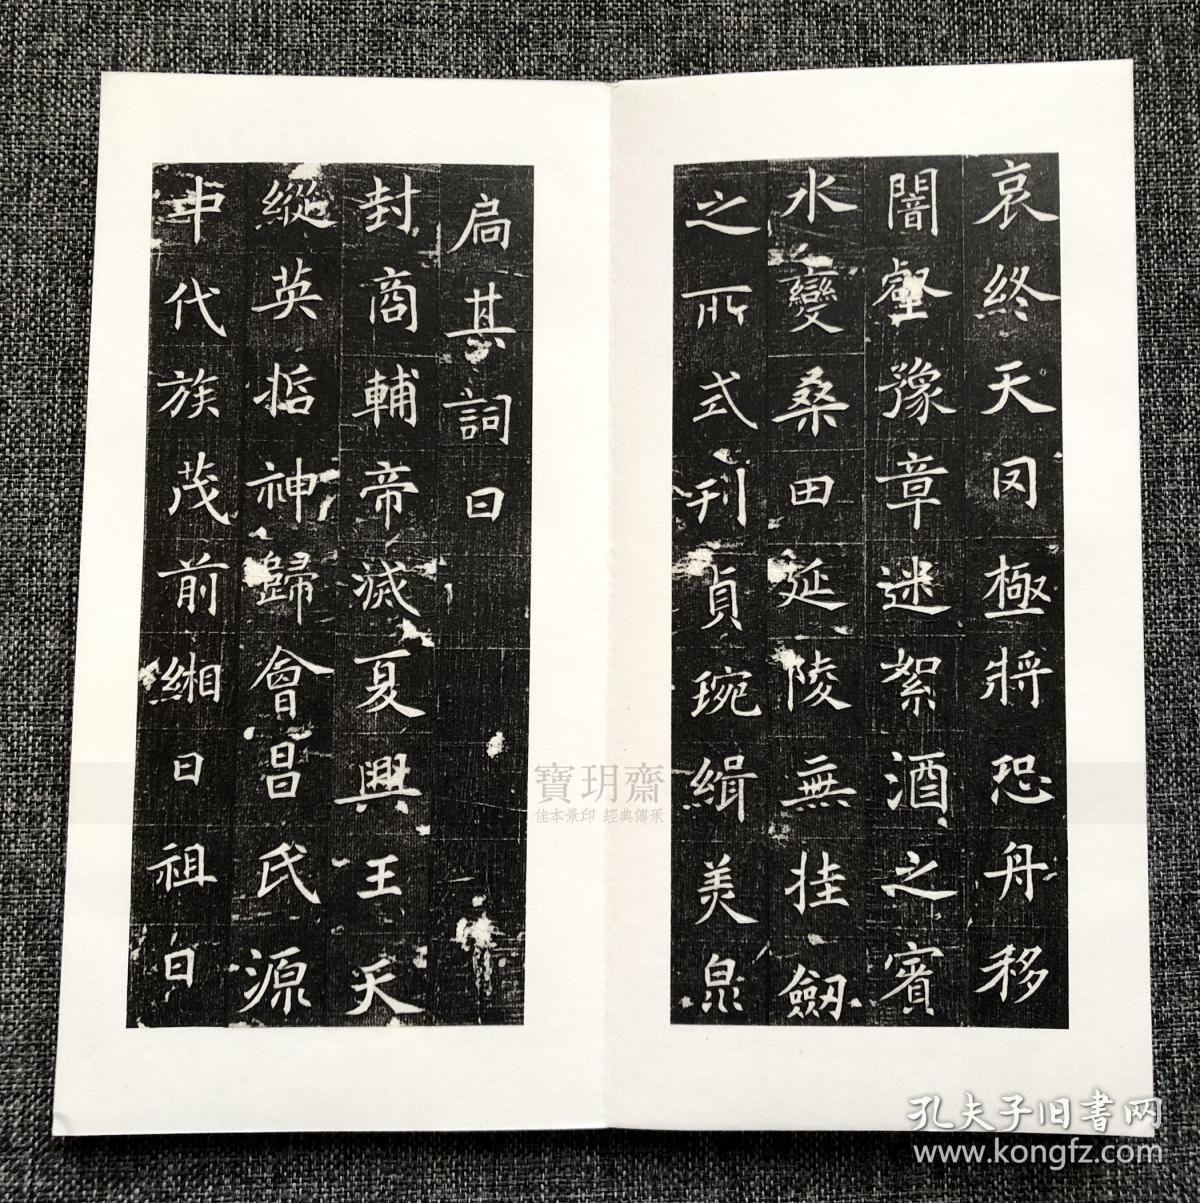 哀終天罔極將恐舟移
闇壑豫章迷絮酒之賓
水變桑田延陵無挂劔
之所式刊貞琬緝美泉
扃其詞曰
封商輔帝滅夏興王天
縱英哲神歸會昌氏源
中代族茂前緗曰祖曰
寶玥齋
佳本景印 經典傳承
孔夫子旧書网
www.kongfz.com